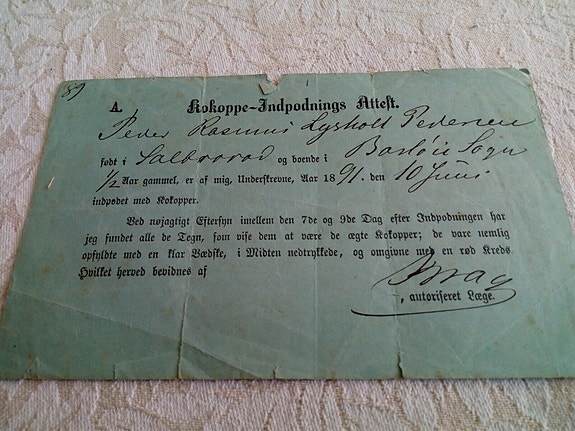 89
A. Kokoppe-Indpodnings Attest.
Peder Rasmus Lysholdt Pedersen
født i og boende i Sogn
1/2 Aar gammel, er af mig, Underskrevne, Aar 1891. den 10 Juni
indpodet med Kokopper.
Ved nøjagtigt Eftersyn imellem den 7de og 9de Dag efter Indpodningen har
jeg fundet alle de Tegn, som vise dem at være de ægte Kokopper; de vare nemlig
opfyldte med en klar Vædske, i Midten nedtrykkede, og omgivne med en rød Kreds
Hvilket herved bevidnes af
, autoriseret Læge.